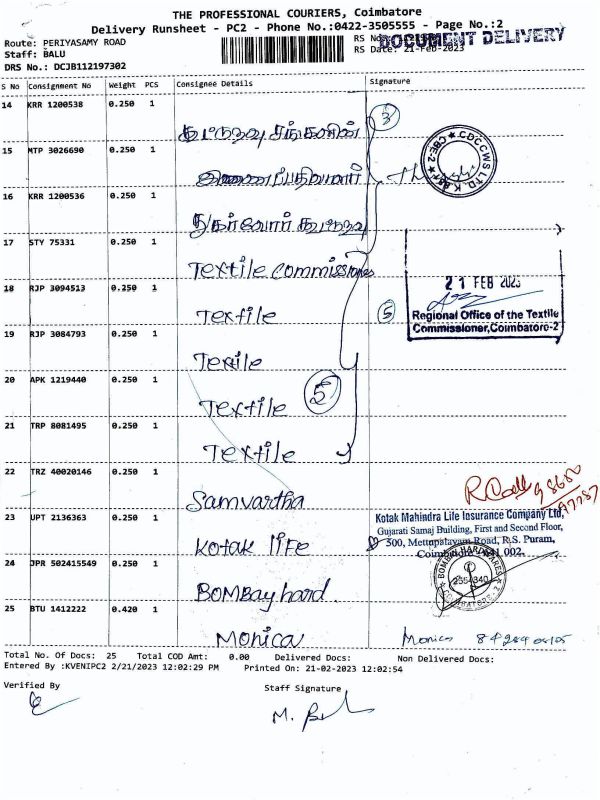 THE PROFESSIONAL COURIERS, Coimbatore
Delivery Runsheet - PC2 - Phone No.:0422-3505555 - Page No.:2
Route: PERIYASAMY ROAD
RS No
DOCUMENT DELIVERY
Staff: BALU
RS Date: 21-Feb-2023
DRS No.: DCJB112197302
S No Consignment No Weight PCS Consignee Details Signature
14 KRR 1200538 0.250 1
3
15 MTP 3026690 0.250 1
CDCCWS LTD.
16 KRR 1200536 0.250 1
17 STY 75331 0.250 1
Textile commissiones
21 FEB 2023
18 RJP 3094513 0.250 1
Textile
5
Regional Office of the Textile
Commissioner,Coimbatore-2
19 RJP 3084793 0.250 1
Textile
20 APK 1219440 0.250 1
Textile
5
21 TRP 8081495 0.250 1
Textile
22 TRZ 40020146 0.250 1
Samvartha
23 UPT 2136363 0.250 1
Kotak life
Kotak Mahindra Life Insurance Company Ltd,
Gujarati Samaj Building, First and Second Floor,
300, Mettupalayam Road, R.S. Puram,
Coimbatore 641 002.
24 JPR 502415549 0.250 1
BOMBay hard
BOMBAY HARDWARES
COIMBATORE-2
25 BTU 1412222 0.420 1
Monica
Monica
Total No. Of Docs: 25 Total COD Amt: 0.00 Delivered Docs: Non Delivered Docs:
Entered By :KVENIPC2 2/21/2023 12:02:29 PM Printed On: 21-02-2023 12:02:54
Verified By
Staff Signature